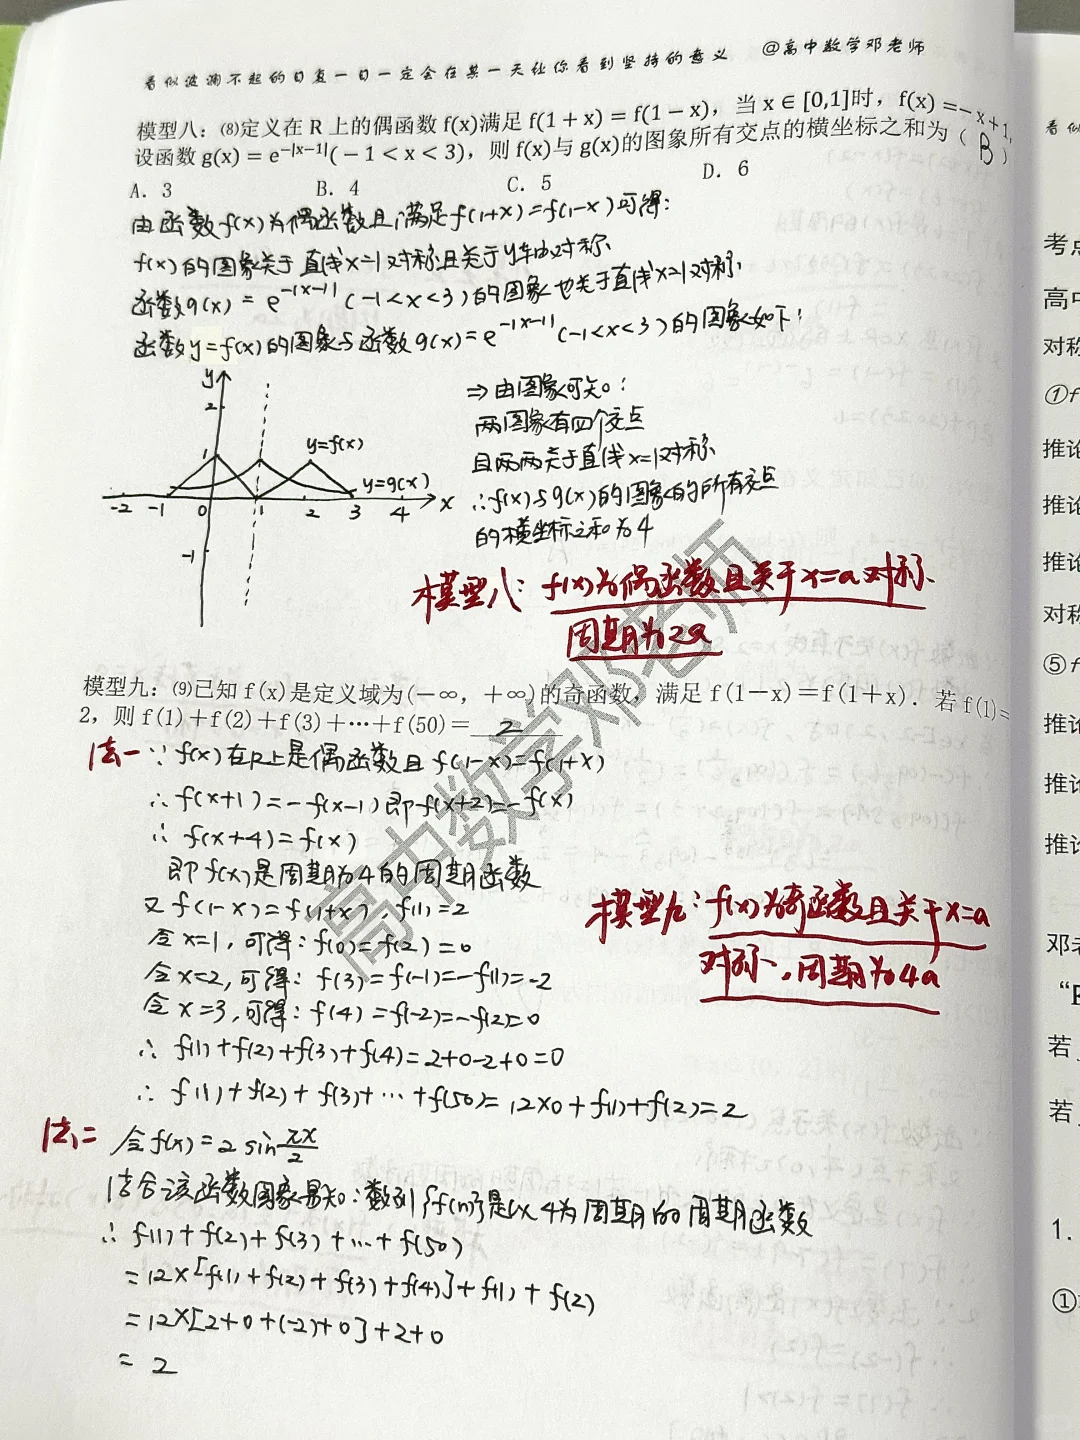 看似波澜不起的日复一日一定会在某一天让你看到坚持的意义 @高中数学邓老师
模型八：⑻定义在 R 上的偶函数 f(x)满足 f(1＋x)＝f(1－x)，当 x∈[0,1]时，f(x)＝－x＋1，
设函数 g(x)＝e^{－|x－1|}(－1＜x＜3)，则 f(x)与 g(x)的图象所有交点的横坐标之和为（ B ）
A．3 B．4 C．5 D．6
由函数f(x)为偶函数且满足f(1+x)=f(1-x)可得：
f(x)的图象关于直线x=1对称且关于y轴对称.
函数g(x)=e^{-|x-1|}(-1<x<3)的图象也关于直线x=1对称.
函数y=f(x)的图象与函数g(x)=e^{-|x-1|}(-1<x<3)的图象如下：
y
2
1
y=f(x)
y=g(x)
-2 -1 0 1 2 3 4 x
-1
⇒由图象可知：
两图象有四个交点
且两两关于直线x=1对称.
∴f(x)与g(x)的图象的所有交点
的横坐标之和为4
模型八：f(x)为偶函数且关于x=a对称.
周期为2a
模型九：⑼已知 f(x)是定义域为(－∞，＋∞)的奇函数，满足 f(1－x)＝f(1＋x)．若 f(1)＝
2，则 f(1)＋f(2)＋f(3)＋…＋f(50)＝ 2
法一 ∵f(x)在R上是偶函数且f(1-x)=f(1+x)
∴f(x+1)=-f(x-1)即f(x+2)=-f(x)
∴f(x+4)=f(x)
即f(x)是周期为4的周期函数
又f(1-x)=f(1+x)，f(1)=2
令x=1，可得：f(0)=f(2)=0
令x=2，可得：f(3)=f(-1)=-f(1)=-2
令x=3，可得：f(4)=f(-2)=-f(2)=0
∴f(1)+f(2)+f(3)+f(4)=2+0-2+0=0
∴f(1)+f(2)+f(3)+…+f(50)=12×0+f(1)+f(2)=2
模型九：f(x)为奇函数且关于x=a
对称，周期为4a
法二 令f(x)=2sin πx/2
结合该函数图象易知：数列{f(n)}是以4为周期的周期函数
∴f(1)+f(2)+f(3)+…+f(50)
=12×[f(1)+f(2)+f(3)+f(4)]+f(1)+f(2)
=12×[2+0+(-2)+0]+2+0
=2
高中数学邓老师
看似
考点
高中
对称
①f
推论
推论
推论
对称
⑤f
推论
推论
推论
邓老
若
若
1.
①